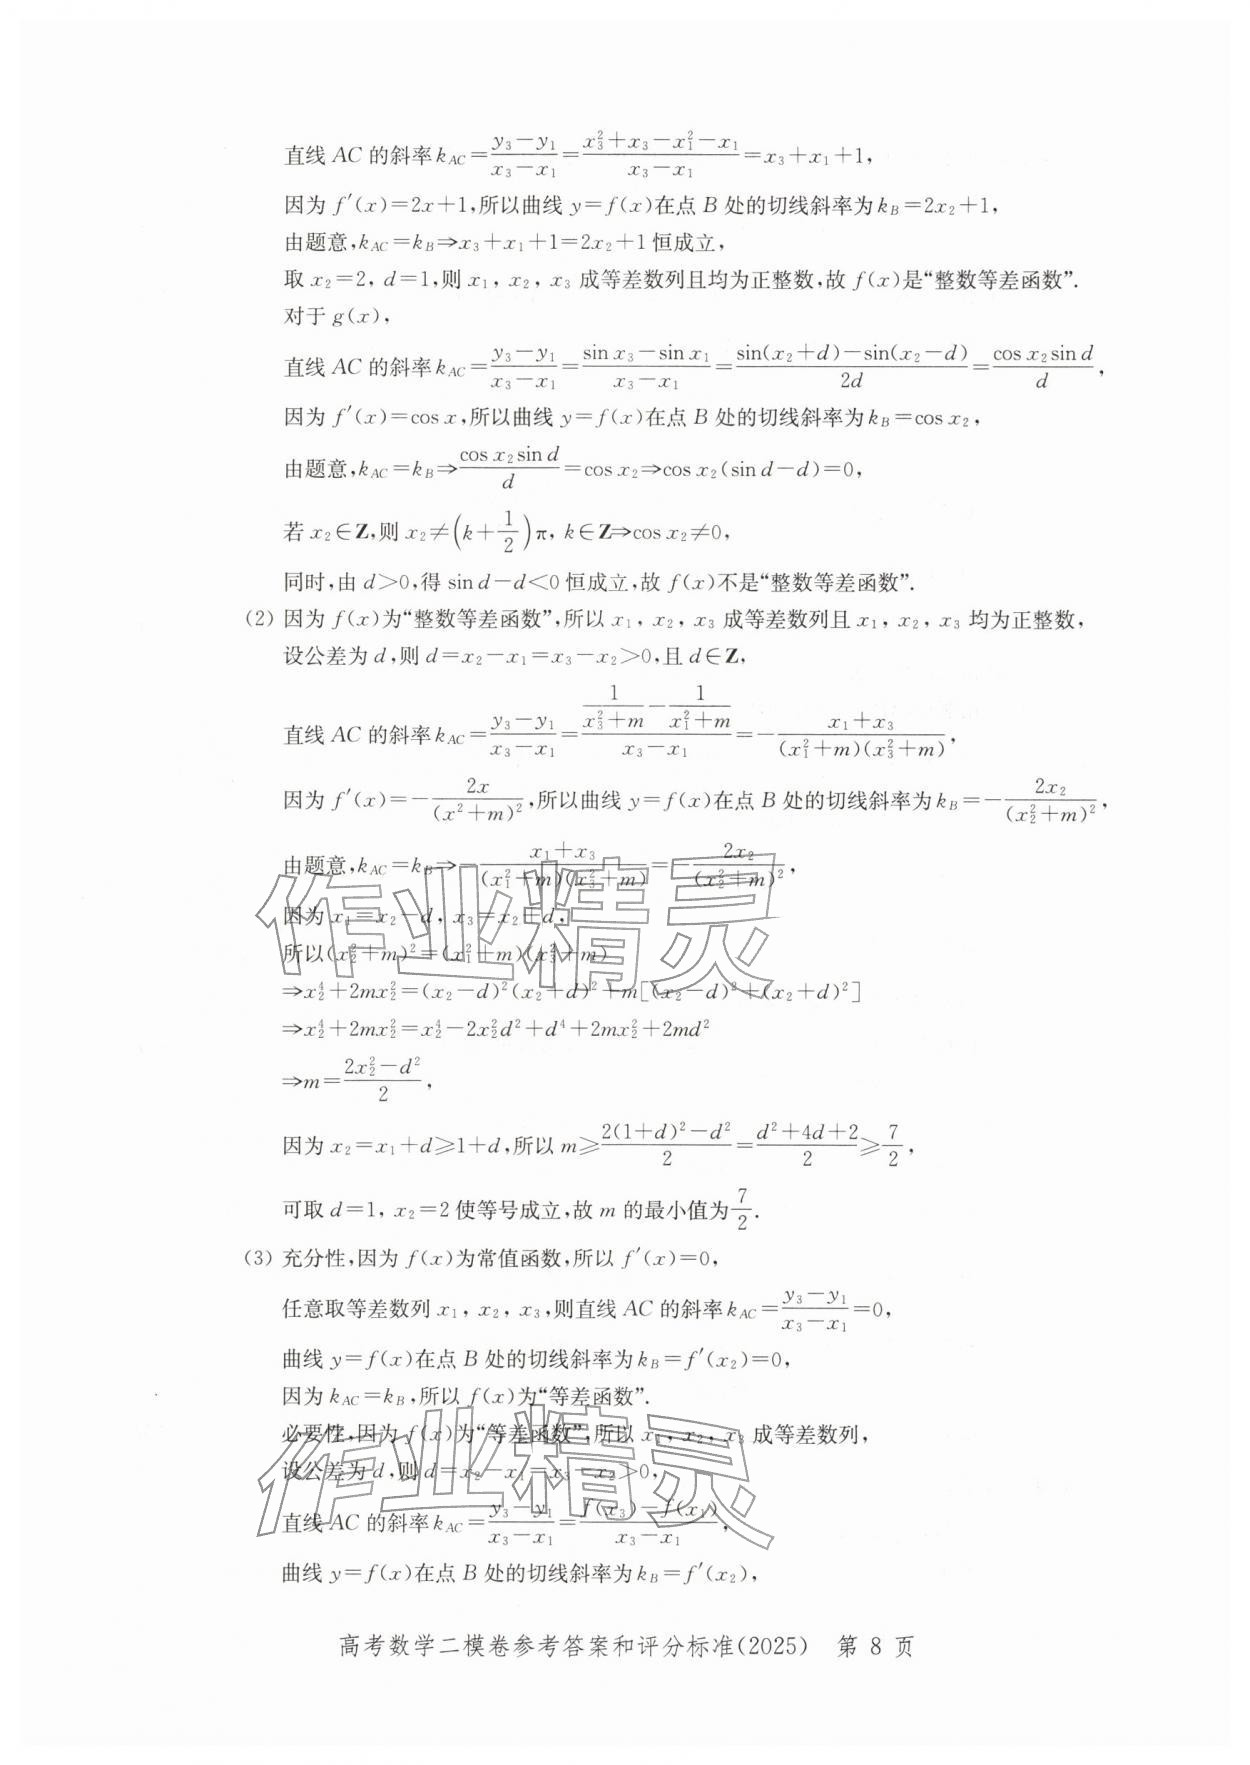 直线 AC 的斜率 k_{AC}=\frac{y_3-y_1}{x_3-x_1}=\frac{x_3^2+x_3-x_1^2-x_1}{x_3-x_1}=x_3+x_1+1,
因为 f'(x)=2x+1,所以曲线 y=f(x)在点 B 处的切线斜率为 k_B=2x_2+1,
由题意,k_{AC}=k_B⇒x_3+x_1+1=2x_2+1 恒成立,
取 x_2=2, d=1,则 x_1, x_2, x_3 成等差数列且均为正整数,故 f(x)是“整数等差函数”.
对于 g(x),
直线 AC 的斜率 k_{AC}=\frac{y_3-y_1}{x_3-x_1}=\frac{sin x_3-sin x_1}{x_3-x_1}=\frac{sin(x_2+d)-sin(x_2-d)}{2d}=\frac{cos x_2 sin d}{d},
因为 f'(x)=cos x,所以曲线 y=f(x)在点 B 处的切线斜率为 k_B=cos x_2,
由题意,k_{AC}=k_B⇒\frac{cos x_2 sin d}{d}=cos x_2⇒cos x_2(sin d-d)=0,
若 x_2∈Z,则 x_2≠(k+\frac{1}{2})π, k∈Z⇒cos x_2≠0,
同时,由 d>0,得 sin d-d<0 恒成立,故 f(x)不是“整数等差函数”.
(2) 因为 f(x)为“整数等差函数”,所以 x_1, x_2, x_3 成等差数列且 x_1, x_2, x_3 均为正整数,
设公差为 d,则 d=x_2-x_1=x_3-x_2>0,且 d∈Z,
直线 AC 的斜率 k_{AC}=\frac{y_3-y_1}{x_3-x_1}=\frac{\frac{1}{x_3^2+m}-\frac{1}{x_1^2+m}}{x_3-x_1}=-\frac{x_1+x_3}{(x_1^2+m)(x_3^2+m)},
因为 f'(x)=-\frac{2x}{(x^2+m)^2},所以曲线 y=f(x)在点 B 处的切线斜率为 k_B=-\frac{2x_2}{(x_2^2+m)^2},
由题意,k_{AC}=k_B⇒-\frac{x_1+x_3}{(x_1^2+m)(x_3^2+m)}=-\frac{2x_2}{(x_2^2+m)^2},
因为 x_1=x_2-d, x_3=x_2+d,
所以(x_2^2+m)^2=(x_1^2+m)(x_3^2+m)
⇒x_2^4+2mx_2^2=(x_2-d)^2(x_2+d)^2+m[(x_2-d)^2+(x_2+d)^2]
⇒x_2^4+2mx_2^2=x_2^4-2x_2^2d^2+d^4+2mx_2^2+2md^2
⇒m=\frac{2x_2^2-d^2}{2},
因为 x_2=x_1+d≥1+d,所以 m≥\frac{2(1+d)^2-d^2}{2}=\frac{d^2+4d+2}{2}≥\frac{7}{2},
可取 d=1, x_2=2 使等号成立,故 m 的最小值为\frac{7}{2}.
(3) 充分性,因为 f(x)为常值函数,所以 f'(x)=0,
任意取等差数列 x_1, x_2, x_3,则直线 AC 的斜率 k_{AC}=\frac{y_3-y_1}{x_3-x_1}=0,
曲线 y=f(x)在点 B 处的切线斜率为 k_B=f'(x_2)=0,
因为 k_{AC}=k_B,所以 f(x)为“等差函数”.
必要性,因为 f(x)为“等差函数”,所以 x_1, x_2, x_3 成等差数列,
设公差为 d,则 d=x_2-x_1=x_3-x_2>0,
直线 AC 的斜率 k_{AC}=\frac{y_3-y_1}{x_3-x_1}=\frac{f(x_3)-f(x_1)}{x_3-x_1},
曲线 y=f(x)在点 B 处的切线斜率为 k_B=f'(x_2),
高考数学二模卷参考答案和评分标准(2025) 第 8 页
作业精灵
作业精灵